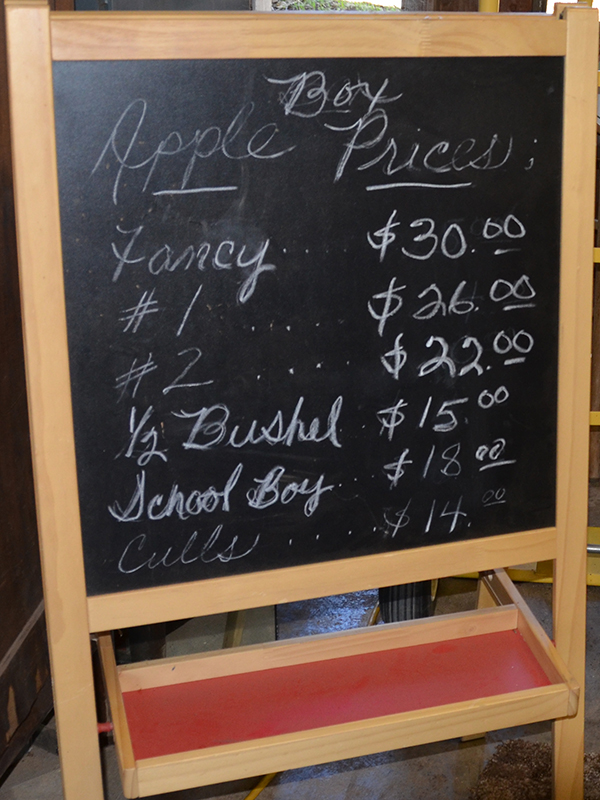 Box
Apple Prices;
Fancy.... $30.00
#1 .... $26.00
#2 .... $22.00
1/2 Bushel.. $15.00
School Boy... $18.00
Culls..... $14.00